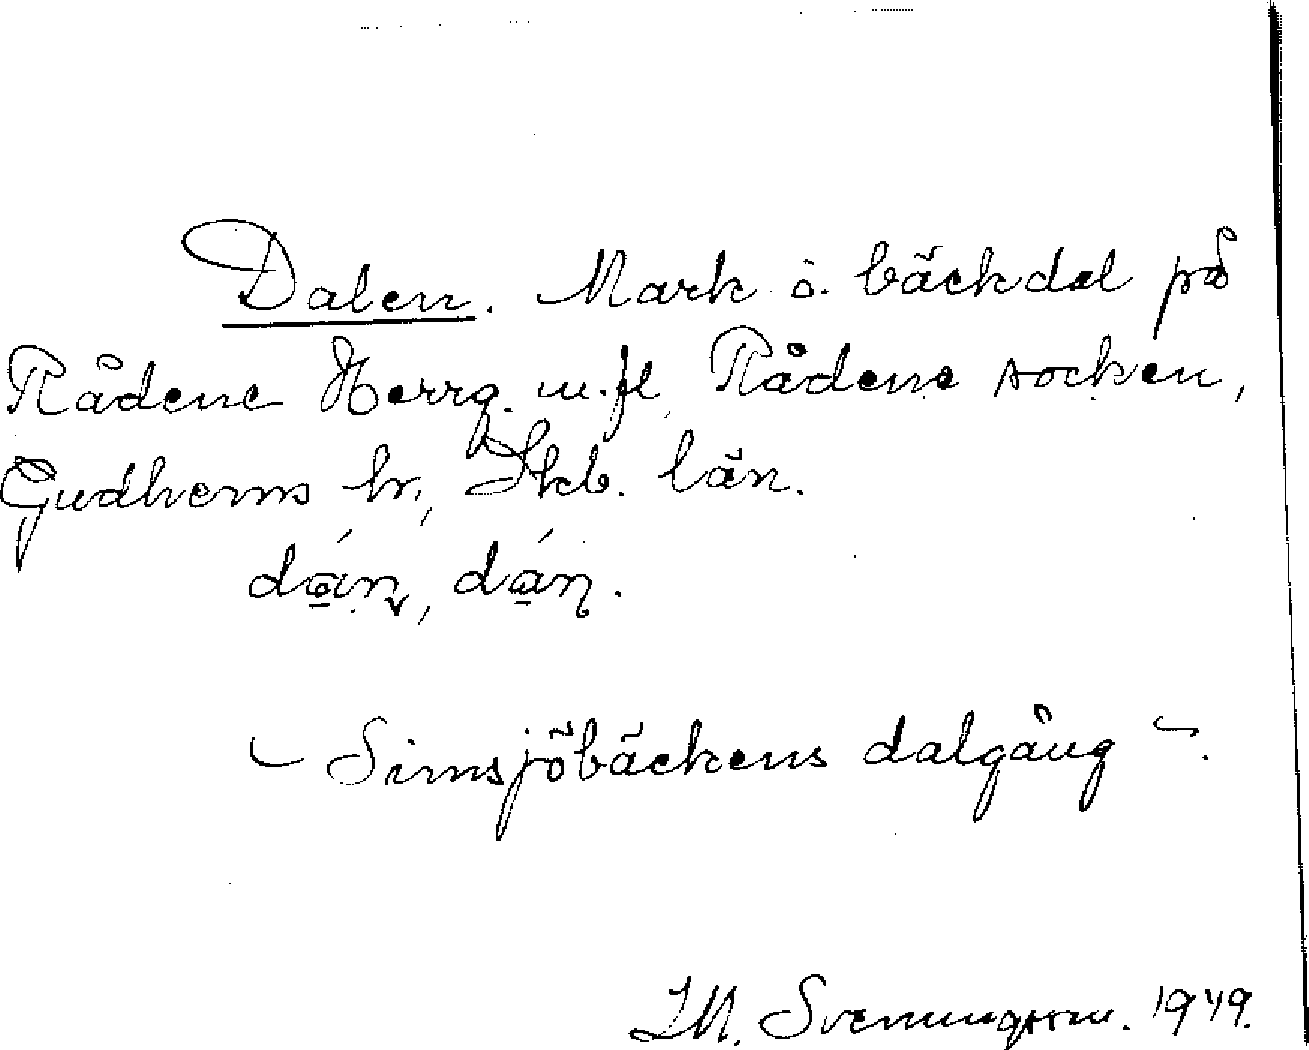 Dalen. Mark o. bäckdal på
Rådene Herrg. m.fl. Rådene socken,
Gudhems hr, Skb. län.
dán, dán.
~ Simsjöbäckens dalgång ~.
I.M. Svenungsson. 1949.